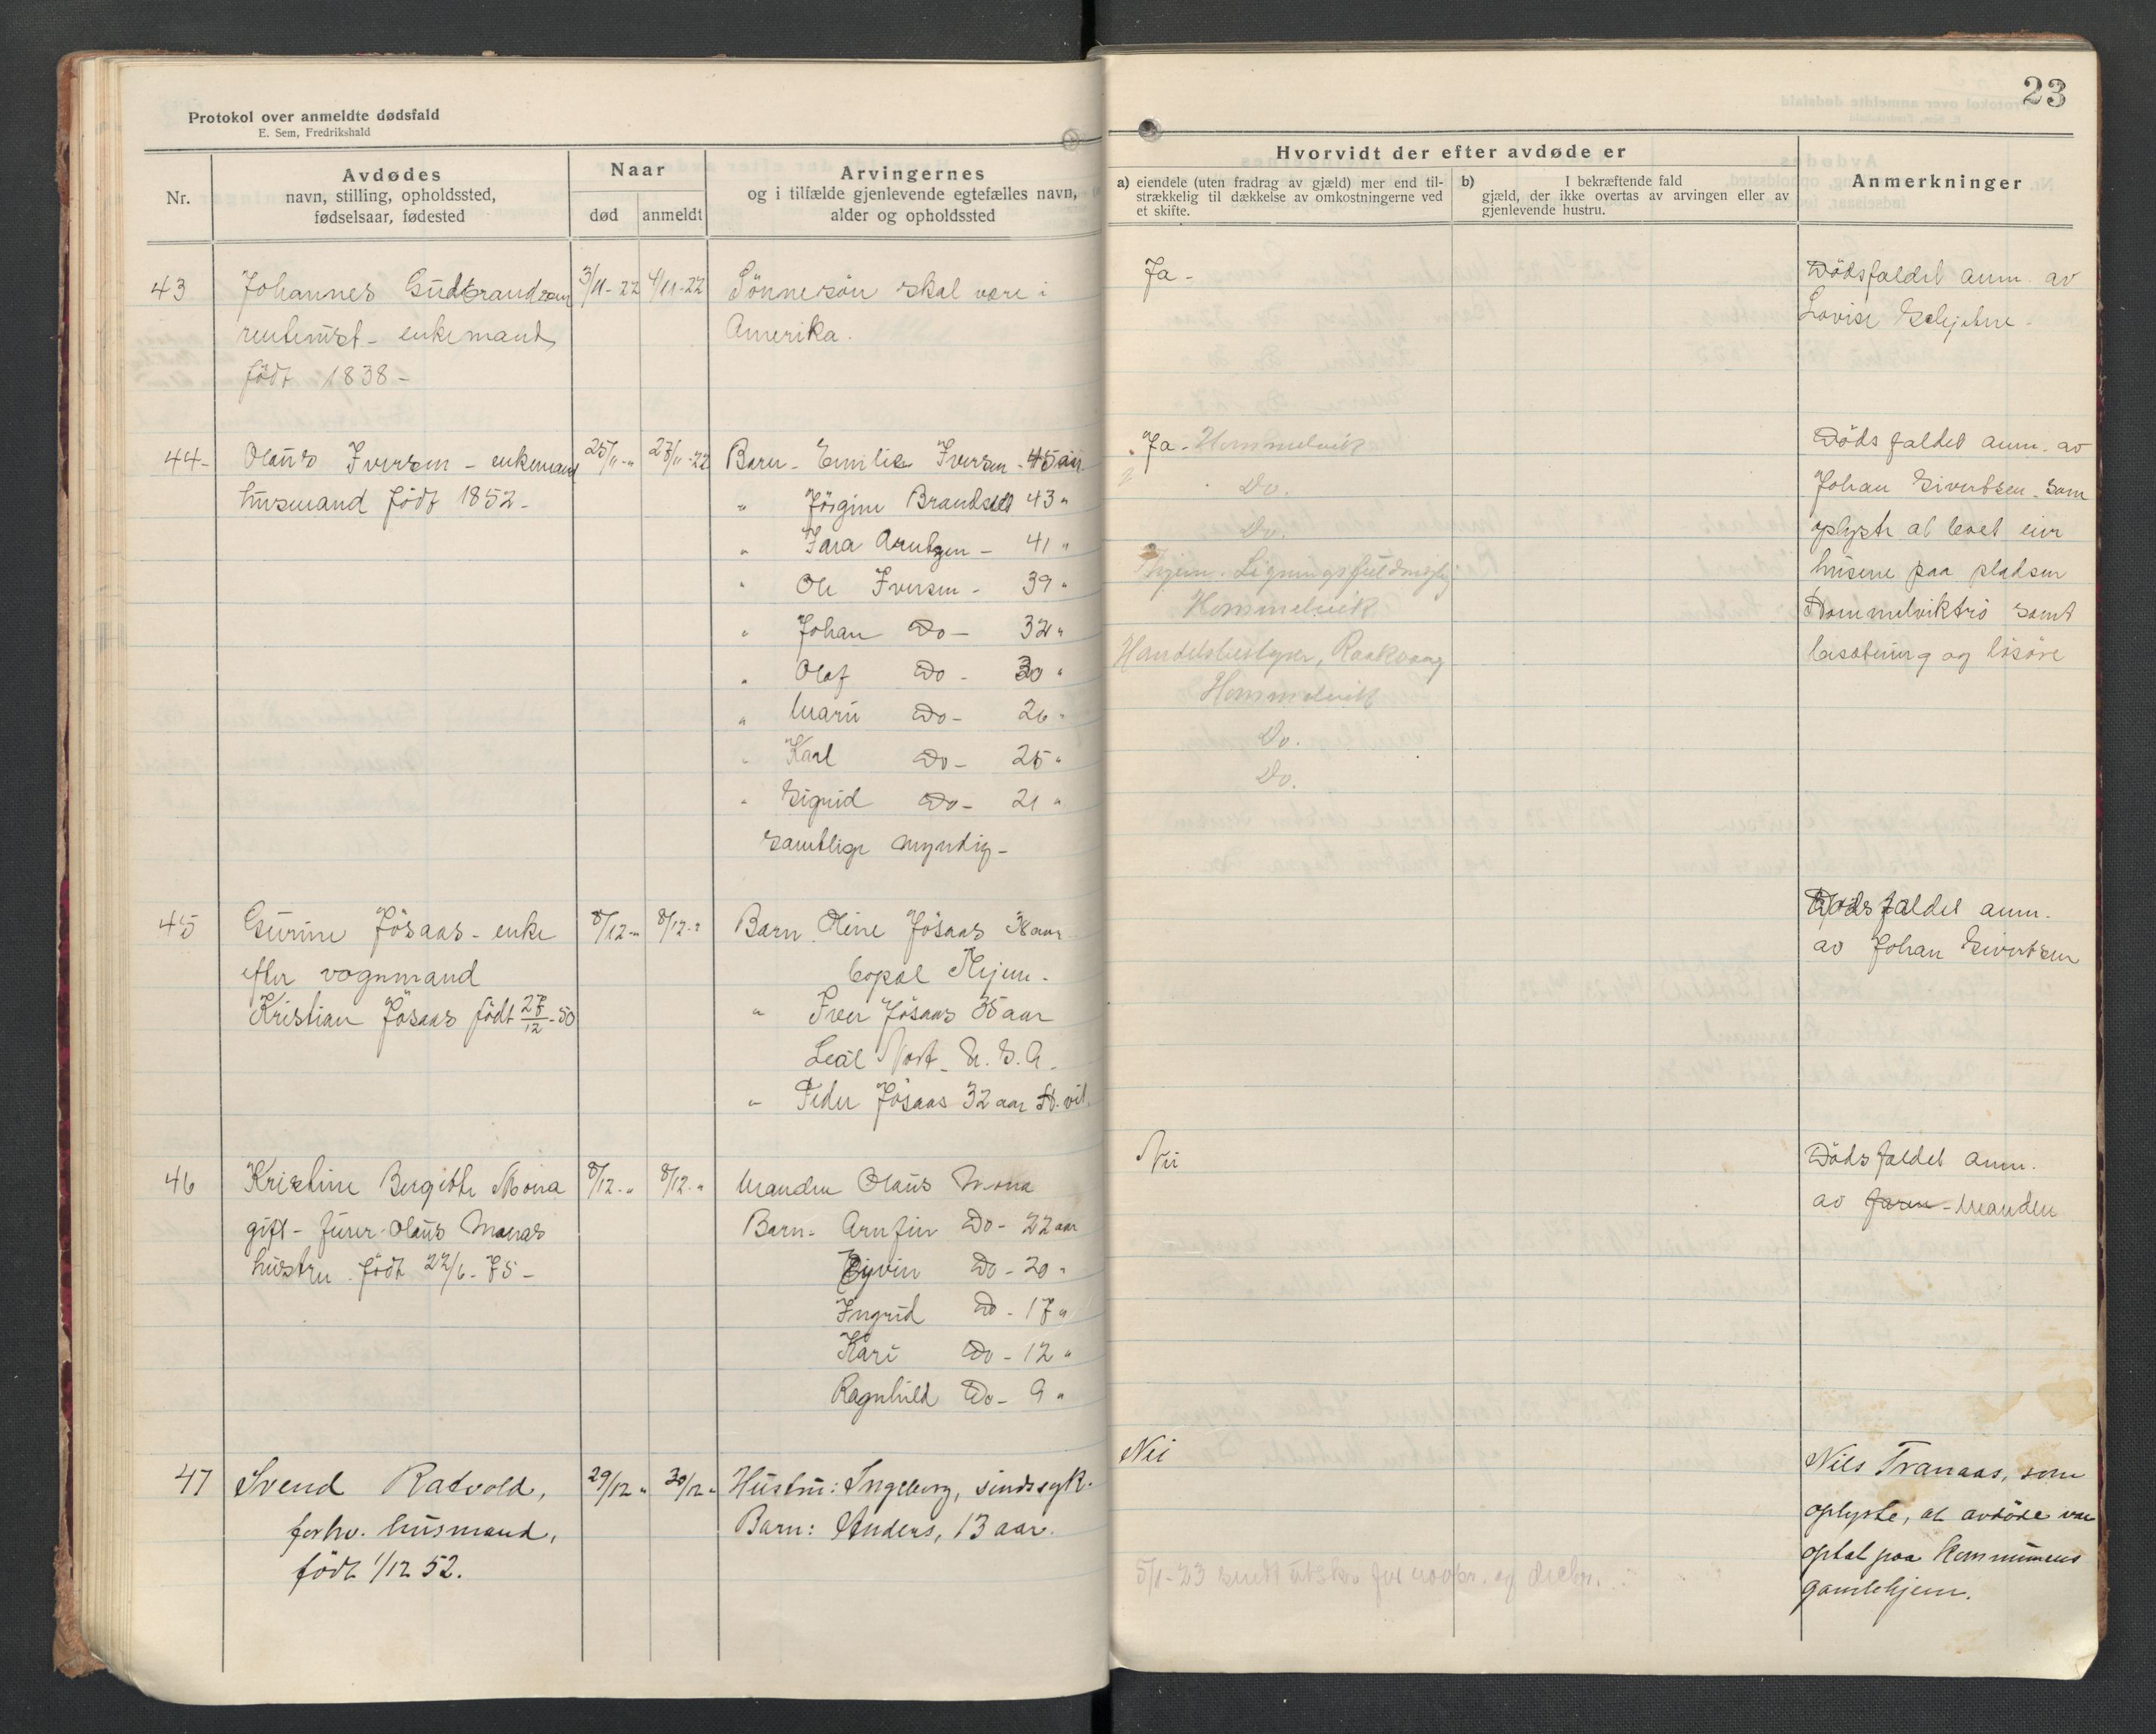 Protokol over anmeldte dødsfald
E. Sem, Fredrikshald
23
Nr.
Avdødes
navn, stilling, opholdssted,
fødselsaar, fødested
Naar
død
anmeldt
Arvingernes
og i tilfælde gjenlevende egtefælles navn,
alder og opholdssted
Hvorvidt der efter avdøde er
a) eiendele (uten fradrag av gjæld) mer end til-
strækkelig til dækkelse av omkostningerne ved
et skifte.
b) I bekræftende fald
gjæld, der ikke overtas av arvingen eller av
gjenlevende hustru.
Anmerkninger
43 Johannes Gudbrandsen 3/11-22 4/11-22 Sønnesøn skal være i Ja - Dødsfaldet anm. av
rentenist - enkemand Amerika. Lovise
født 1838 -
44- Olaus Iversen - enkemand 25/11-" 27/11-22 Barn - Emilie Iversen - 45 aar Ja - Hommelvik Dødsfaldet anm. av
husmand født 1852 - " Jørgine 43 " Do. Johan Sivertsen som
" Arntzen - 41 " Do. oplyste at boet eier
" Ole Iversen - 39 " husene paa pladsen
" Johan Do - 32 " Hommelvik Hommelviktrø samt
" Olaf Do - 30 " Handelsbestyrer, Raakvaag besætning og løsøre
" Marie Do - 26 " Hommelvik
" Karl Do - 25 " Do.
" Sigrid Do - 21 " Do.
samtlige myndig -
45 Gurine Jøsaas - enke 8/12-" 8/12-" Barn Oline Jøsaas 38 aar Dødsfaldet anm.
efter vognmand Thjem. av Johan Sivertsen
Kristian Jøsaas født 27/12-50 " Iver Jøsaas 35 aar
U.S.A.
" Peder Jøsaas 32 aar H.vik
46 Kristine Bergitte Mona 8/12-" 8/12-" Manden Olaus Mona Nei Dødsfaldet anm.
gift - Olaus Monas Barn - Arnfin Do - 22 aar av Manden
hustru. født 22/6-75 - Eyvin Do - 20 "
Ingrid Do - 17 "
Kari Do - 12 "
Ragnhild Do - 9 "
47 Svend Ratvold, 29/12 " 30/12 " Hustru: Ingeborg, sindssyk. Nei Nils Tranaas, som
forhv. husmand, Barn: Anders, 13 aar. oplyste, at avdøde var
født 1/12 52. optat paa kommunens
5/1-23 sendt utskr. for novbr. og decbr. gamlehjem.